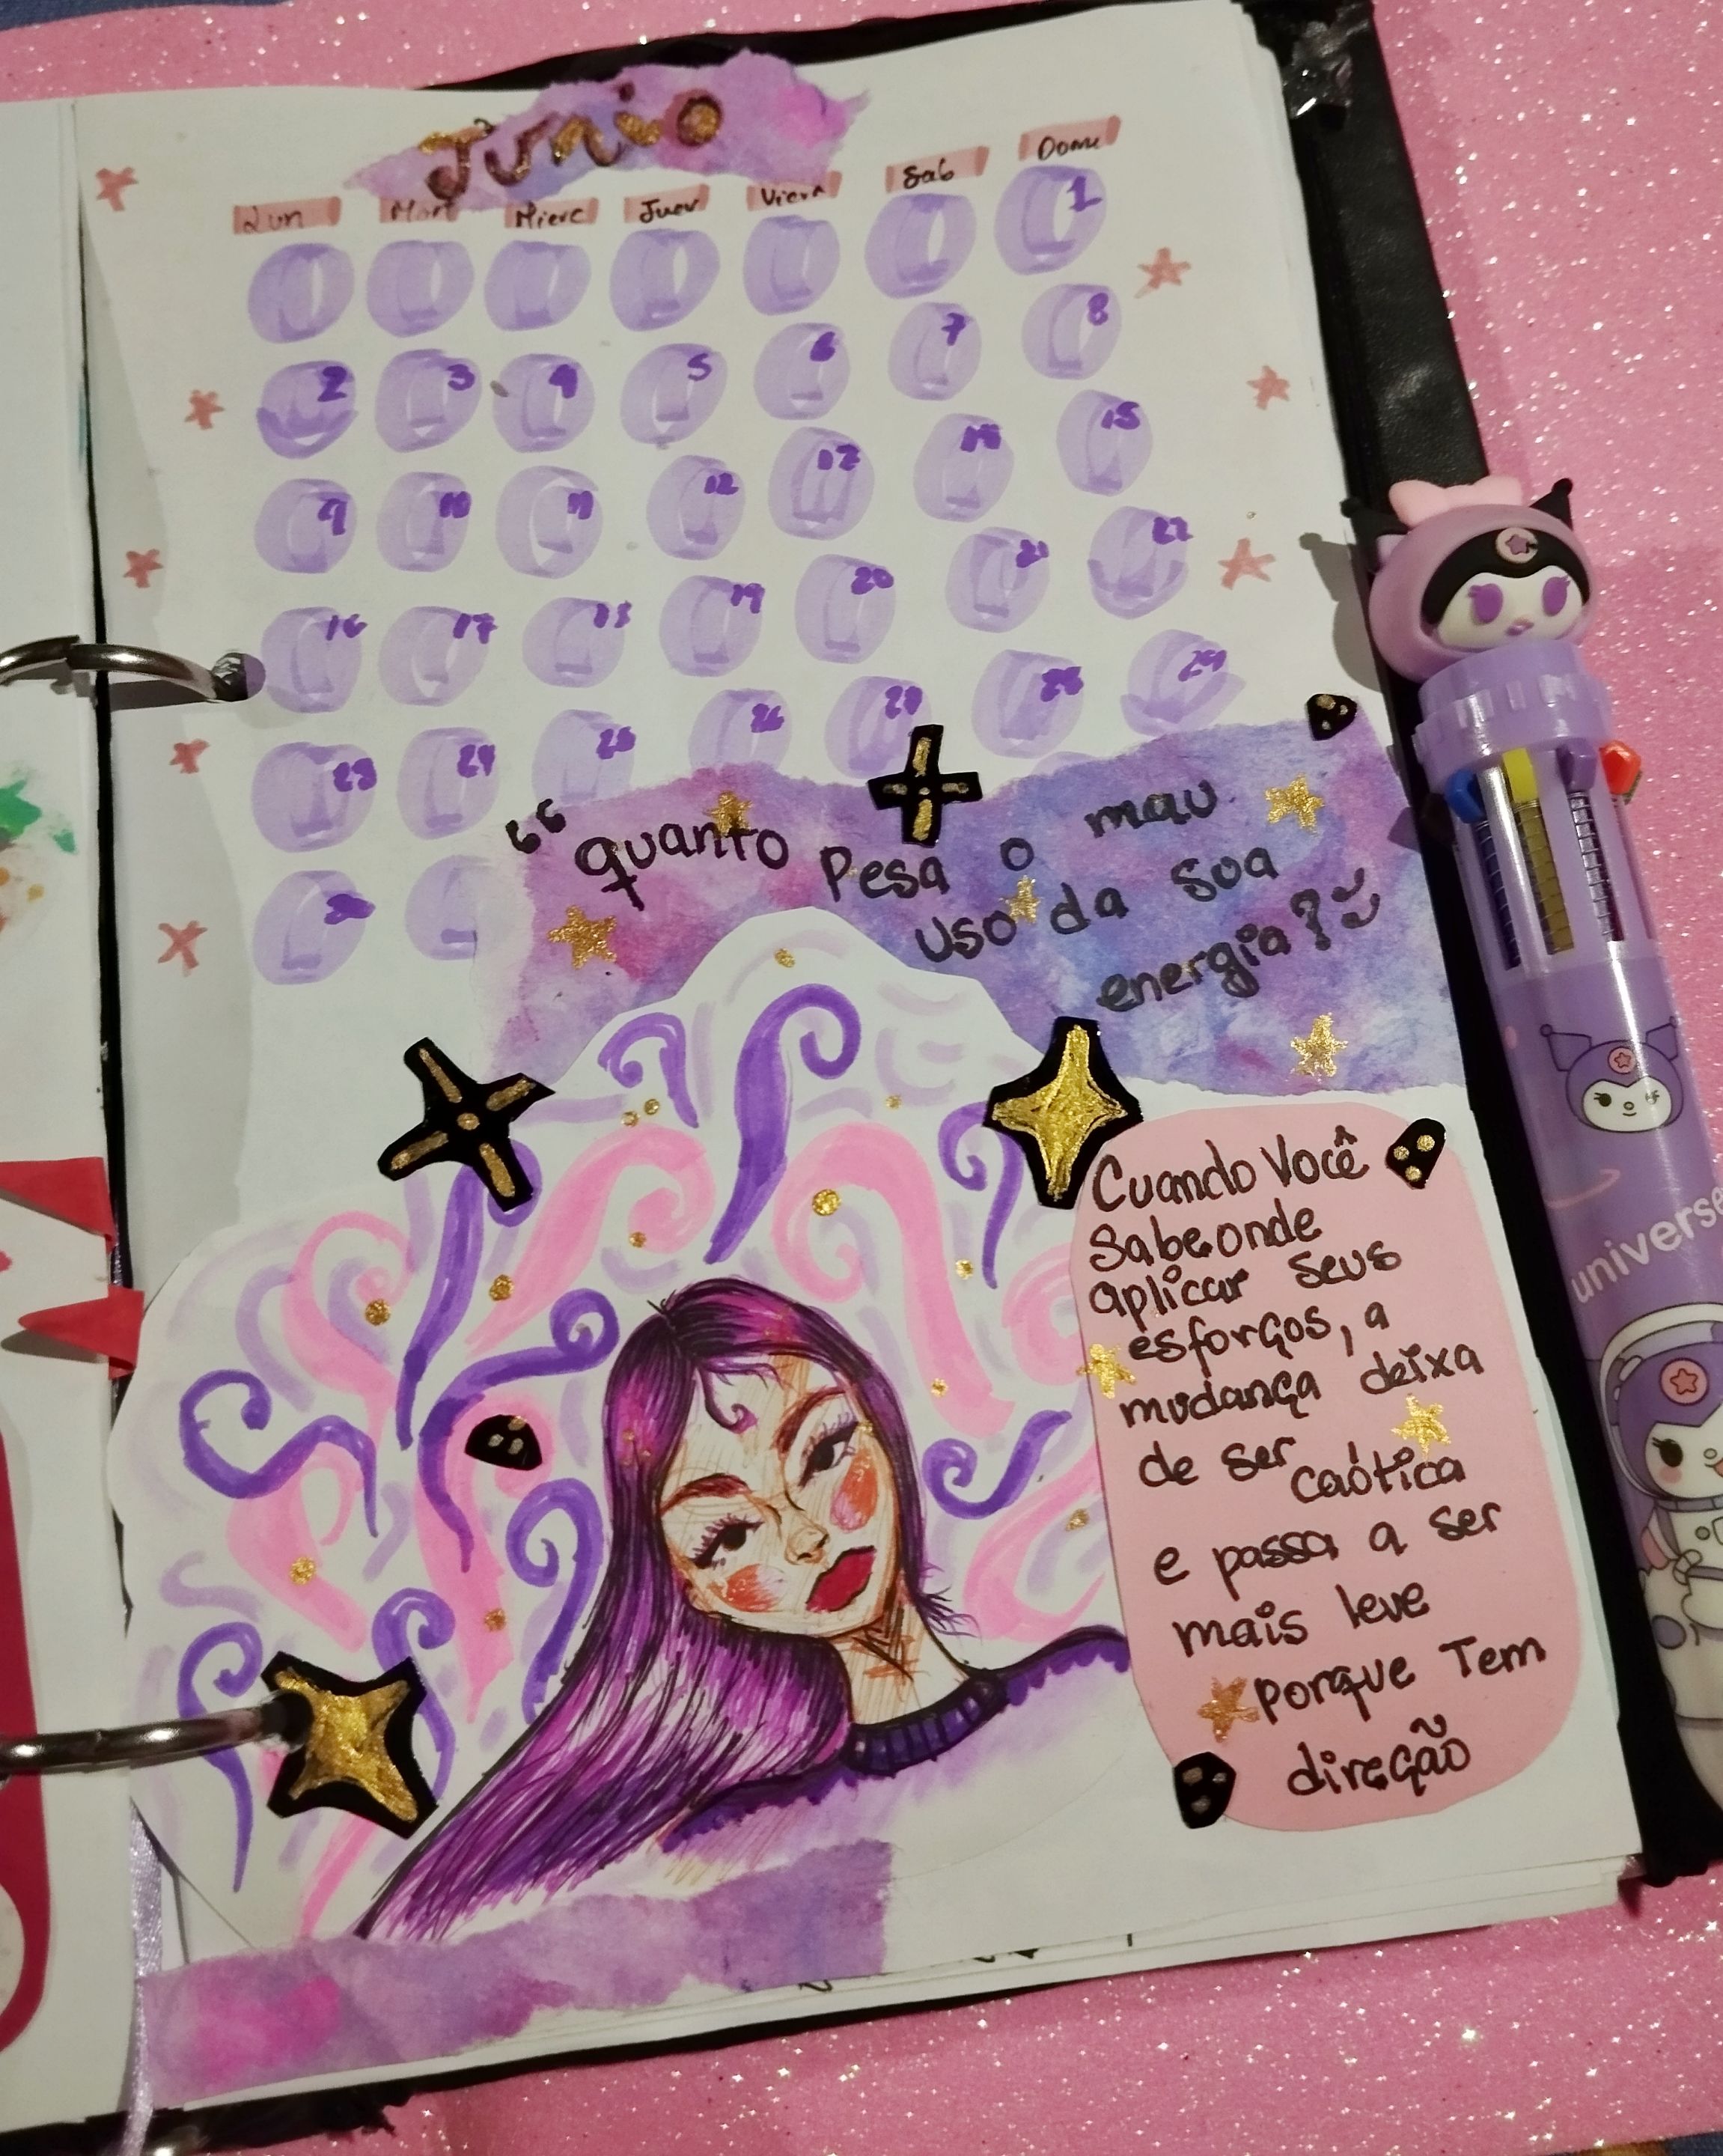 Junio
Lun Mart Mierc Juev Viern Sab Dome
1
2 3 4 5 6 7 8
9 10 11 12 13 14 15
16 17 18 19 20 21 22
23 24 25 26 27 28 29
30
“quanto Pesa o mau
uso da sua
energia?
Cuando Você
Sabe onde
aplicar seus
esforços, a
mudança deixa
de ser caótica
e passa a ser
mais leve
porque Tem
direção
universe